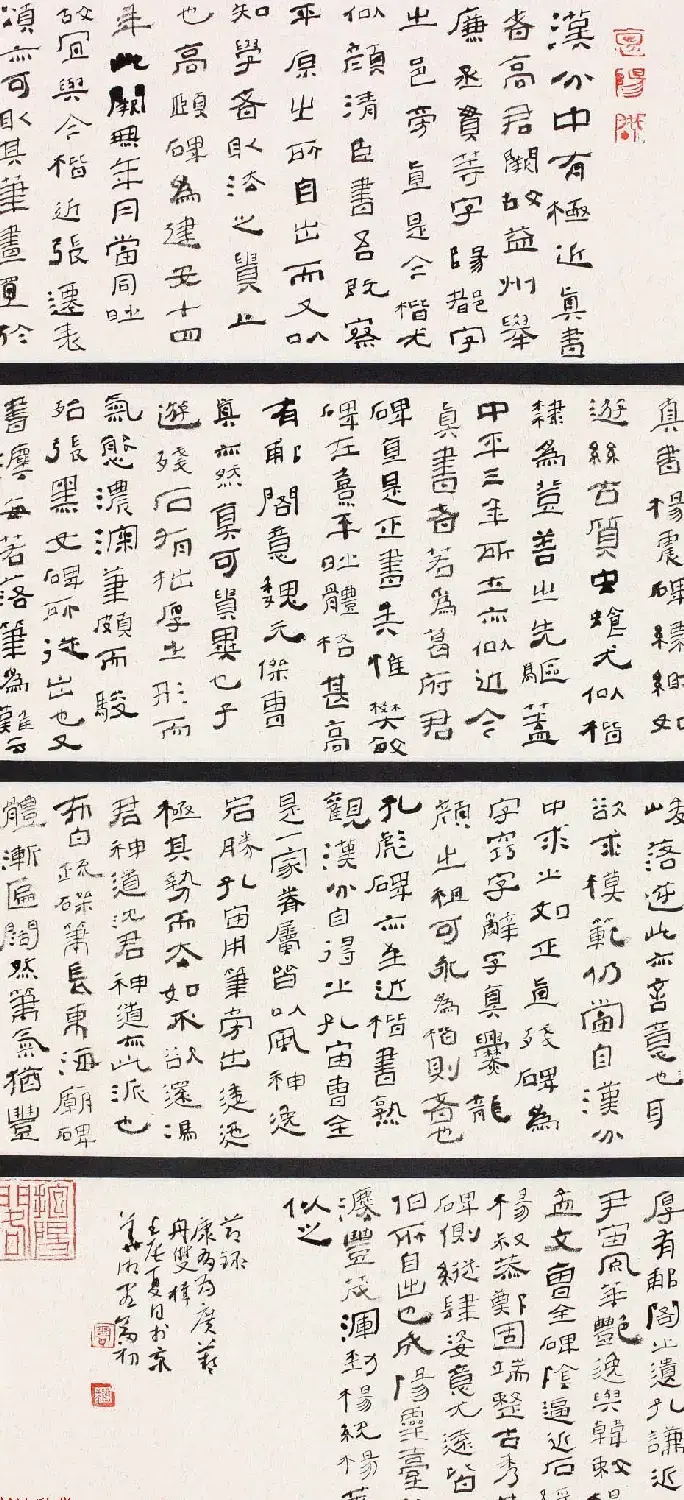 漢分中有極近真書
者高君闕故益州舉
廉丞貫等字陽都字
之邑旁直是今楷尤
似顏清臣書吾既察
平原之所自出而又以
知學者取法之貴上
也高頤碑為建安十四
年此闕無年月當同時
故宜與今楷近張遷表
頌亦可取其筆畫直於
真書楊震碑縹緲如
遊絲古質蟲蝕尤似楷
隸為登善之先驅蓋
中平三年所立亦似近今
真書者若為葛府君
碑直是正書矣惟樊敏
碑在熹平時體格甚高
有郙閣意魏元傑曹
真亦然真可貴異也子
遊殘石有拙厚之形而
氣態濃深筆頗而駿
殆張黑女碑所從出也又
書法每苦落筆為難云
峻落逆此亦套意也耳
欲求模範仍當自漢分
中求之如正直殘碑為
字窈字辭字真爨龍
顏之祖可永為楷則者也
孔彪碑亦至近楷書熟
觀漢分自得之孔宙曹全
是一家眷屬皆以風神逸
宕勝孔宙用筆旁出逶迤
極其勢而去如不欲還馮
君神道沈君神道亦此派也
布白疏磔筆長東海廟碑
體漸匾闊然筆氣猶豐
厚有郙閣之遺孔謙近
尹宙風華艷逸與韓敕楊
孟文曹全碑陰逼近石經
楊叔恭鄭固端整古秀其
碑側縱肆姿意尤遠皆
伯所自出也成陽靈臺
瀍豐茂渾勁楊統楊著
似之
節錄
康有為廣藝
舟雙楫
壬辰夏日於京